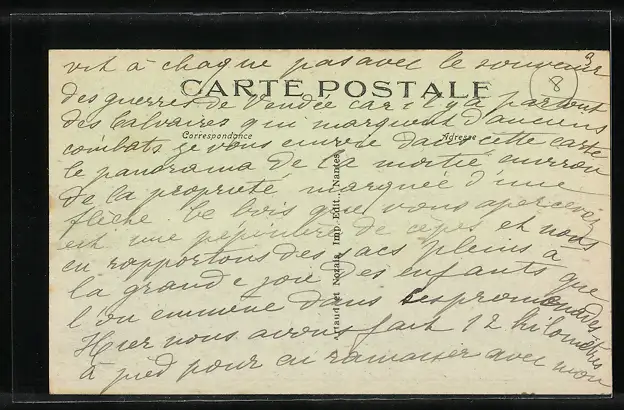 vit à chaque pas avec le souvenir
CARTE POSTALE
8
des guerres de Vendée car il y a partout
des Calvaires qui marquent d'anciens
Correspondance
Adresse
combats je vous envoie dans cette carte
le panorama de la moitié environ
de la propriété marquée d'une
flèche. Le bois que vous apercevez
est une pépinière de cèpes et nous
en rapportons des sacs pleins à
la grande joie des enfants que
l'on emmène dans ces promenades
Hier nous avons fait 12 kilomètres
à pied pour en ramasser avec mon
Artaud et Nozais, Imp. Edit., Nantes